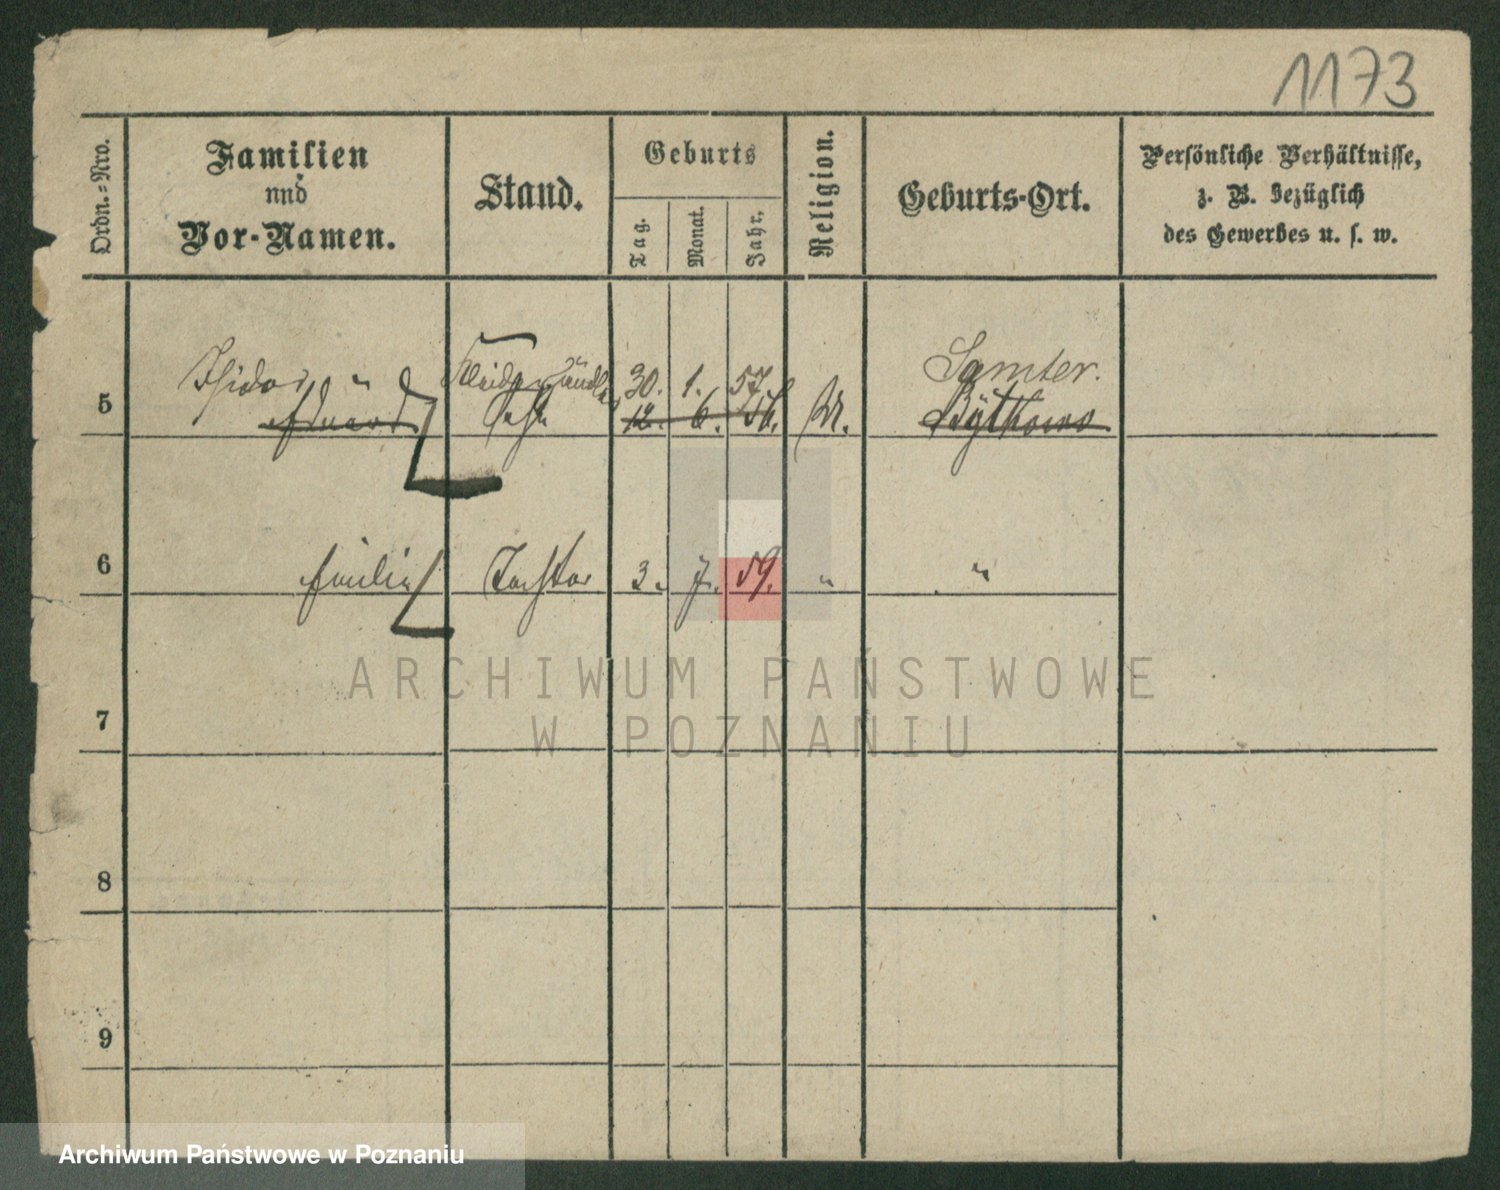 1173
Ordn.-Nro.
Familien
und
Vor-Namen.
Stand.
Geburts
Tag.
Monat.
Jahr.
Religion.
Geburts-Ort.
Persönliche Verhältnisse,
z. B. bezüglich
des Gewerbes u. s. w.
Isidor Kleiderhändler 30. 1. 57. Samter.
5 Eduard Sohn 12. 6. 56.
6 Emilie Tochter 3. 7. 59. " "
7
8
9
ARCHIWUM PAŃSTWOWE
W POZNANIU
Archiwum Państwowe w Poznaniu